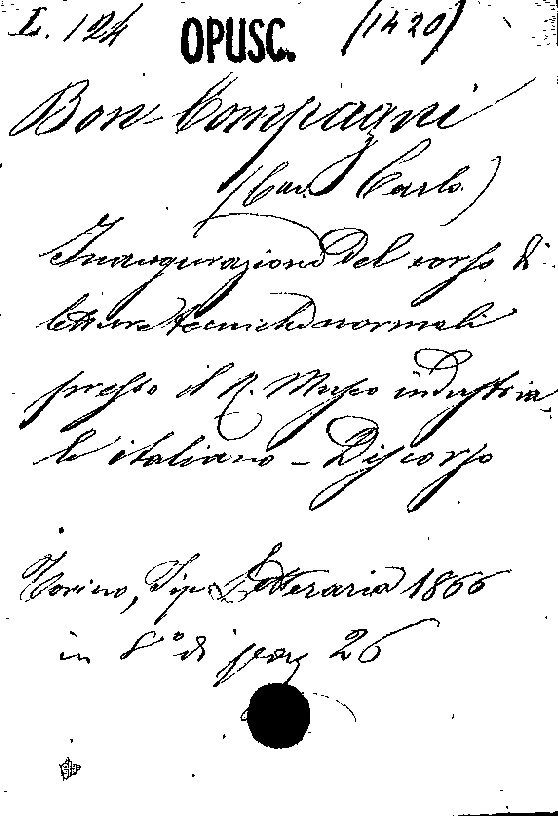 L. 124 OPUSC. (1420)
Bon-Compagni
(Cav. Carlo)
Inaugurazione del corso di
letture tecniche normali
presso il R. Museo industria-
le italiano - Discorso
Torino, Tip. Letteraria 1866
in 8° di pag 26